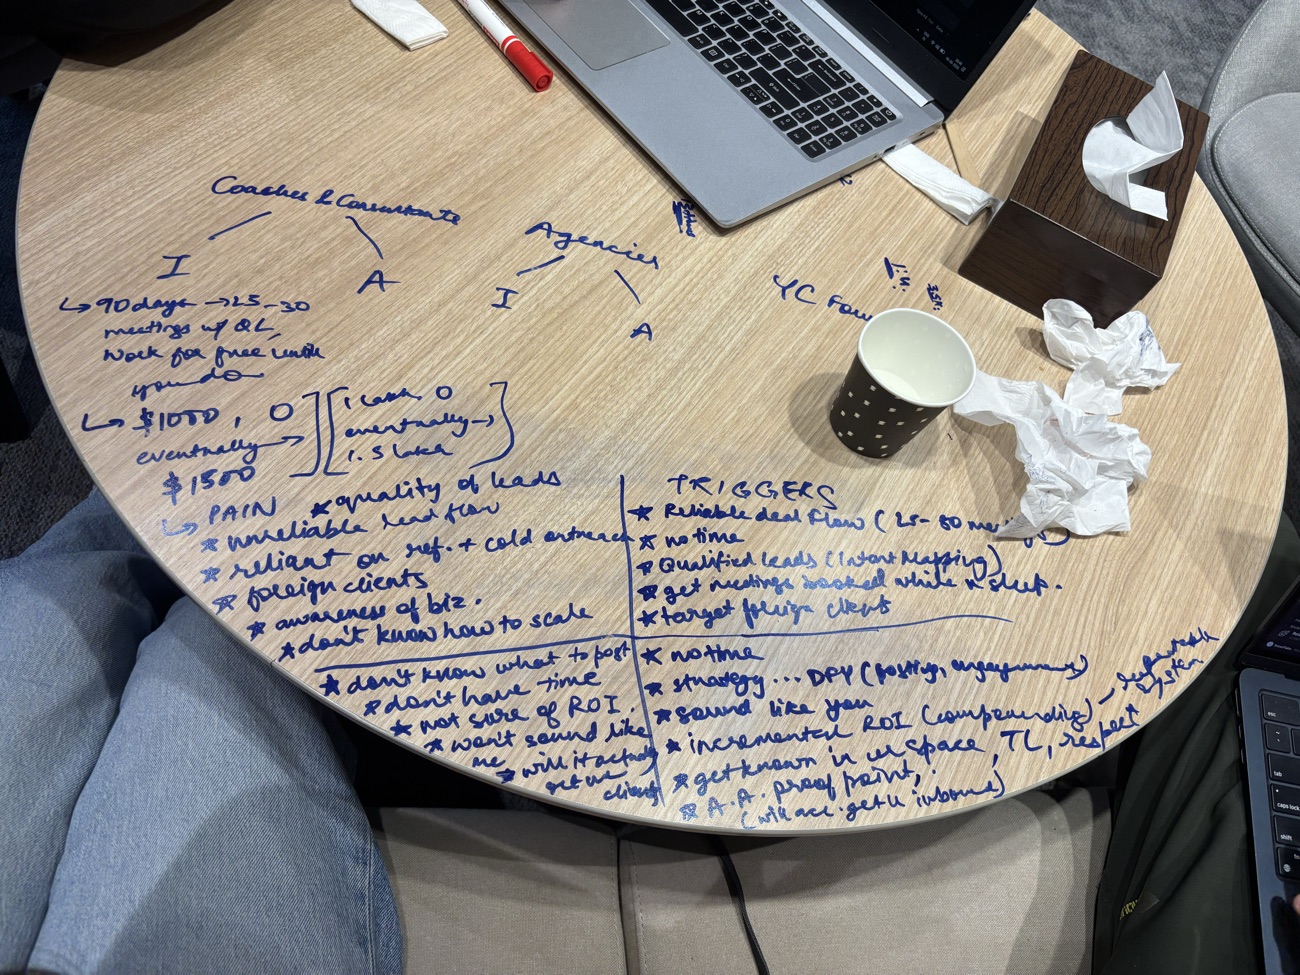 Coaches & Consultants
I
A
↳ 90 days → 25-30
meetings w/ QL,
Work for free until
you do
↳ $1000, 0
eventually →
$1500
1 lakh, 0
eventually →
1.5 lakh
Agencies
I
A
YC
↳ PAIN
★ quality of leads
★ unreliable lead flow
★ reliant on ref. + cold outreach
★ foreign clients
★ awareness of biz.
★ don't know how to scale
TRIGGERS
★ Reliable deal flow (
★ no time
★ Qualified leads (Intent Mapping)
★ get meetings booked while u sleep.
★ target foreign clients
★ don't know what to post
★ don't have time
★ not sure of ROI.
★ won't sound like
me
★ will it actually
get me
clients
★ no time
★ strategy... DFY (posting,
★ sound like you
★ incremental ROI (compounding) -
system
★ get known in ur space, TL, respect
★ A.A. proof point,
get u inbound)
esc
tab
caps lock
shift
fn